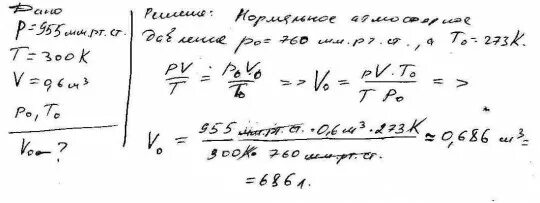 Дано
P=955 мм.рт.ст.
T=300К
V=0,6м³
P₀, T₀
V₀-?
Решение: Нормальное атмосферное
давление p₀=760 мм.рт.ст., а T₀=273К.
pV/T = p₀V₀/T₀ => V₀ = pV·T₀/T p₀ =>
V₀ = 955 мм.рт.ст.·0,6м³·273К/300К·760 мм.рт.ст. ≈ 0,686 м³=
=686л.